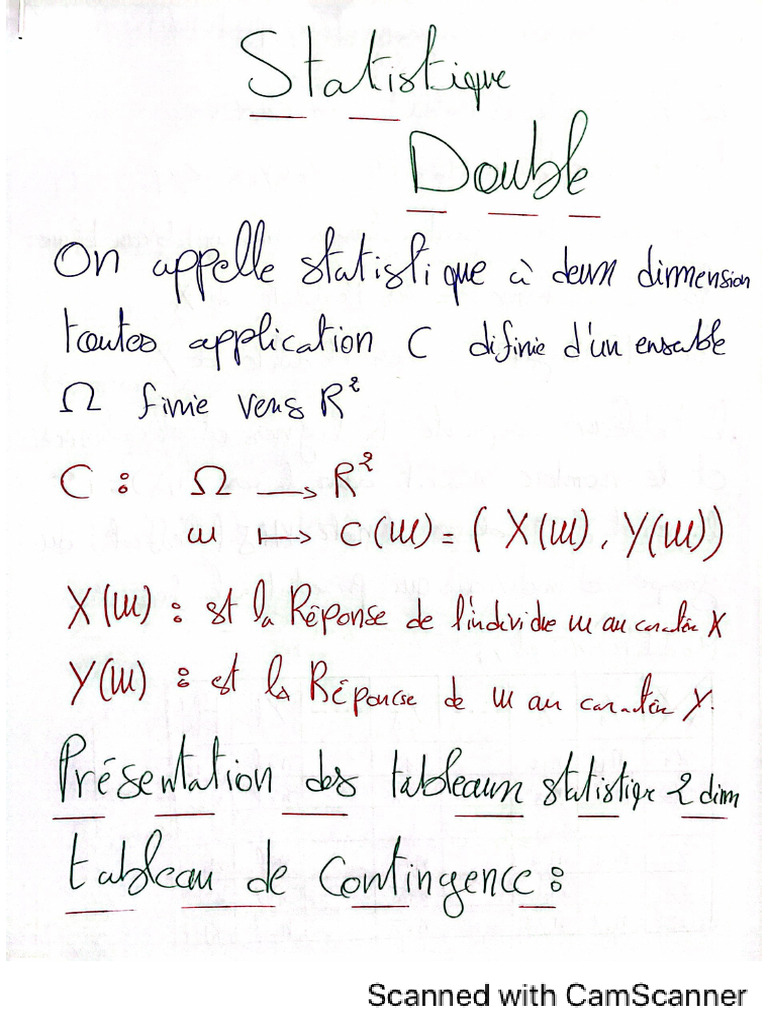 Statistique
Double
On appelle statistique à deux dimension
toutes application C difinie d'un ensable
Ω finie vers R²
C : Ω → R²
ω ↦ C(ω) = ( X(ω), Y(ω))
X(ω) : est la Réponse de l'individue ω au caractère X
Y(ω) : est la Réponse de ω au caractère Y.
Présentation des tableaux statistique 2 dim
tableau de Contingence :
Scanned with CamScanner